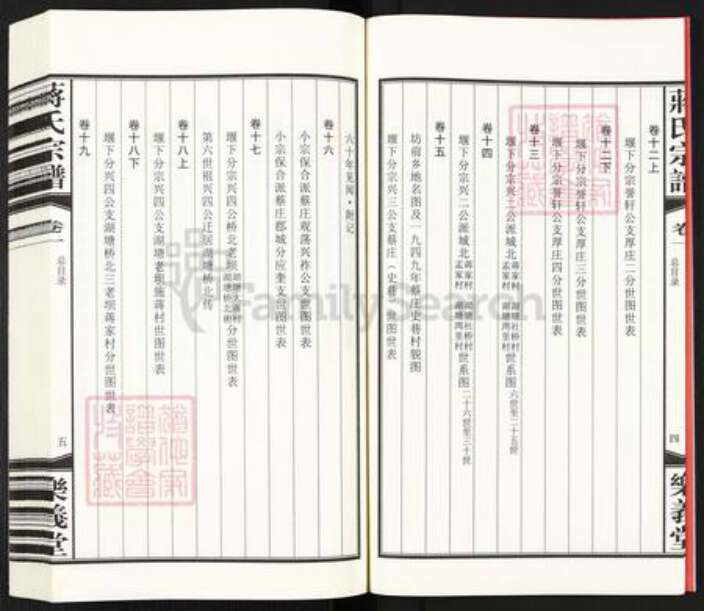 蔣氏宗譜
卷一
总目录
四
樂義堂
卷十二上
堰下分宗誉轩公支厚庄二分世图世表
卷十二下
堰下分宗誉轩公支厚庄三分世图世表
堰下分宗誉轩公支厚庄四分世图世表
卷十三
堰下分宗兴二公派城北蒋家村 孟家村 湖塘社桥村 湖塘湾里村世系图六世至二十五世
卷十四
堰下分宗兴二公派城北蒋家村 孟家村 湖塘社桥村 湖塘湾里村世系图二十六世至三十世
卷十五
坊前乡地名图及一九四九年蔡庄史巷村貌图
堰下分宗兴三公支蔡庄(史巷)世图世表
六十年见闻·附记
卷十六
小宗保合派蔡庄观荡兴祚公支世图世表
小宗保合派蔡庄郡城分应奎支世图世表
卷十七
堰下分宗兴四公桥北老坝分世图世表
第六世祖兴四公迁居湖塘桥北传
卷十八上
堰下分宗兴四公支湖塘老坝施蒋村世图世表
卷十八下
堰下分兴四公支湖塘桥北三老坝蒋家村分世图世表
卷十九
蔣氏宗譜
卷一
总目录
五
樂義堂
FamilySearch